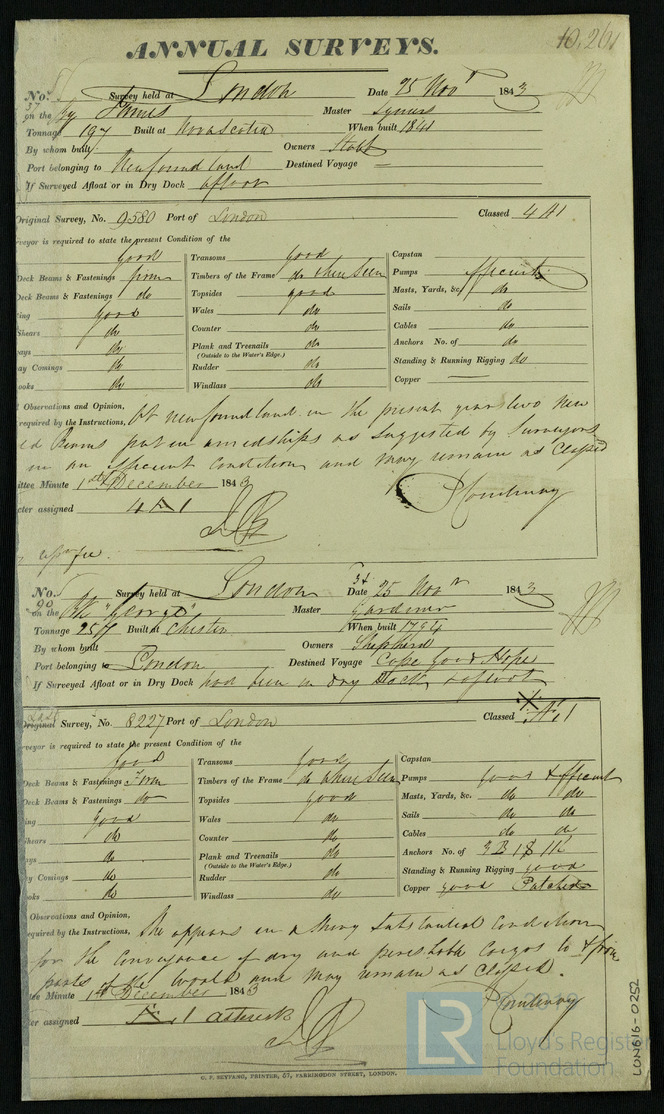 10,261
ANNUAL SURVEYS.
No. Survey held at London Date 25 Novr 1843
37
on the James Master Symes
Tonnage 197 Built at Nova Scotia When built 1841
By whom built Owners Stabb
Port belonging to Newfoundland Destined Voyage —
If Surveyed Afloat or in Dry Dock afloat
Original Survey, No. 9580 Port of London Classed 4 A 1
veyor is required to state the present Condition of the
good Transoms good Capstan
Deck Beams & Fastenings from Timbers of the Frame do where seen Pumps Efficient
Deck Beams & Fastenings do Topsides good Masts, Yards, &c. do
ing good Wales do Sails do
Shears do Counter do Cables do
ays do Plank and Treenails do Anchors No. of do
(Outside to the Water's Edge.)
ay Comings do Rudder do Standing & Running Rigging do
ooks do Windlass do Copper
l Observations and Opinion,
required by the Instructions, At Newfoundland in the present year two New
Beams put in amidships as suggested by Surveyors
in an Efficient Condition and may remain as Classed
ttee Minute 1st December 1843 P Courtenay
cter assigned 4 A 1
No. Survey held at London Date 25 Novr 1843
90
on the Bk "George" Master Gardiner
Tonnage 257 Built at Chester When built 1794
By whom built Owners Shepherd
Port belonging to London Destined Voyage Cape Good Hope
If Surveyed Afloat or in Dry Dock had been in Dry Dock & afloat
Original Survey, No. 8227 Port of London Classed Æ 1
veyor is required to state the present Condition of the
good Transoms good Capstan
Deck Beams & Fastenings from Timbers of the Frame do where seen Pumps good & Efficient
Deck Beams & Fastenings do Topsides good Masts, Yards, &c. do do
ing good Wales do Sails do do
Shears do Counter do Cables do do
ays do Plank and Treenails do Anchors No. of 3 B 1 S 1 K
(Outside to the Water's Edge.)
y Comings do Rudder do Standing & Running Rigging good
oks do Windlass do Copper good Patched
Observations and Opinion,
equired by the Instructions, She appears in a Substantial Condition
for the Conveyance of dry and perishable Cargos to & from
parts of the World and may remain as Classed.
tee Minute 1st December 1843 P Courtenay
er assigned Æ 1
G. F. SEYFANG, PRINTER, 57, FARRINGDON STREET, LONDON.
LR
Lloyd's Register
Foundation
LON616-0252